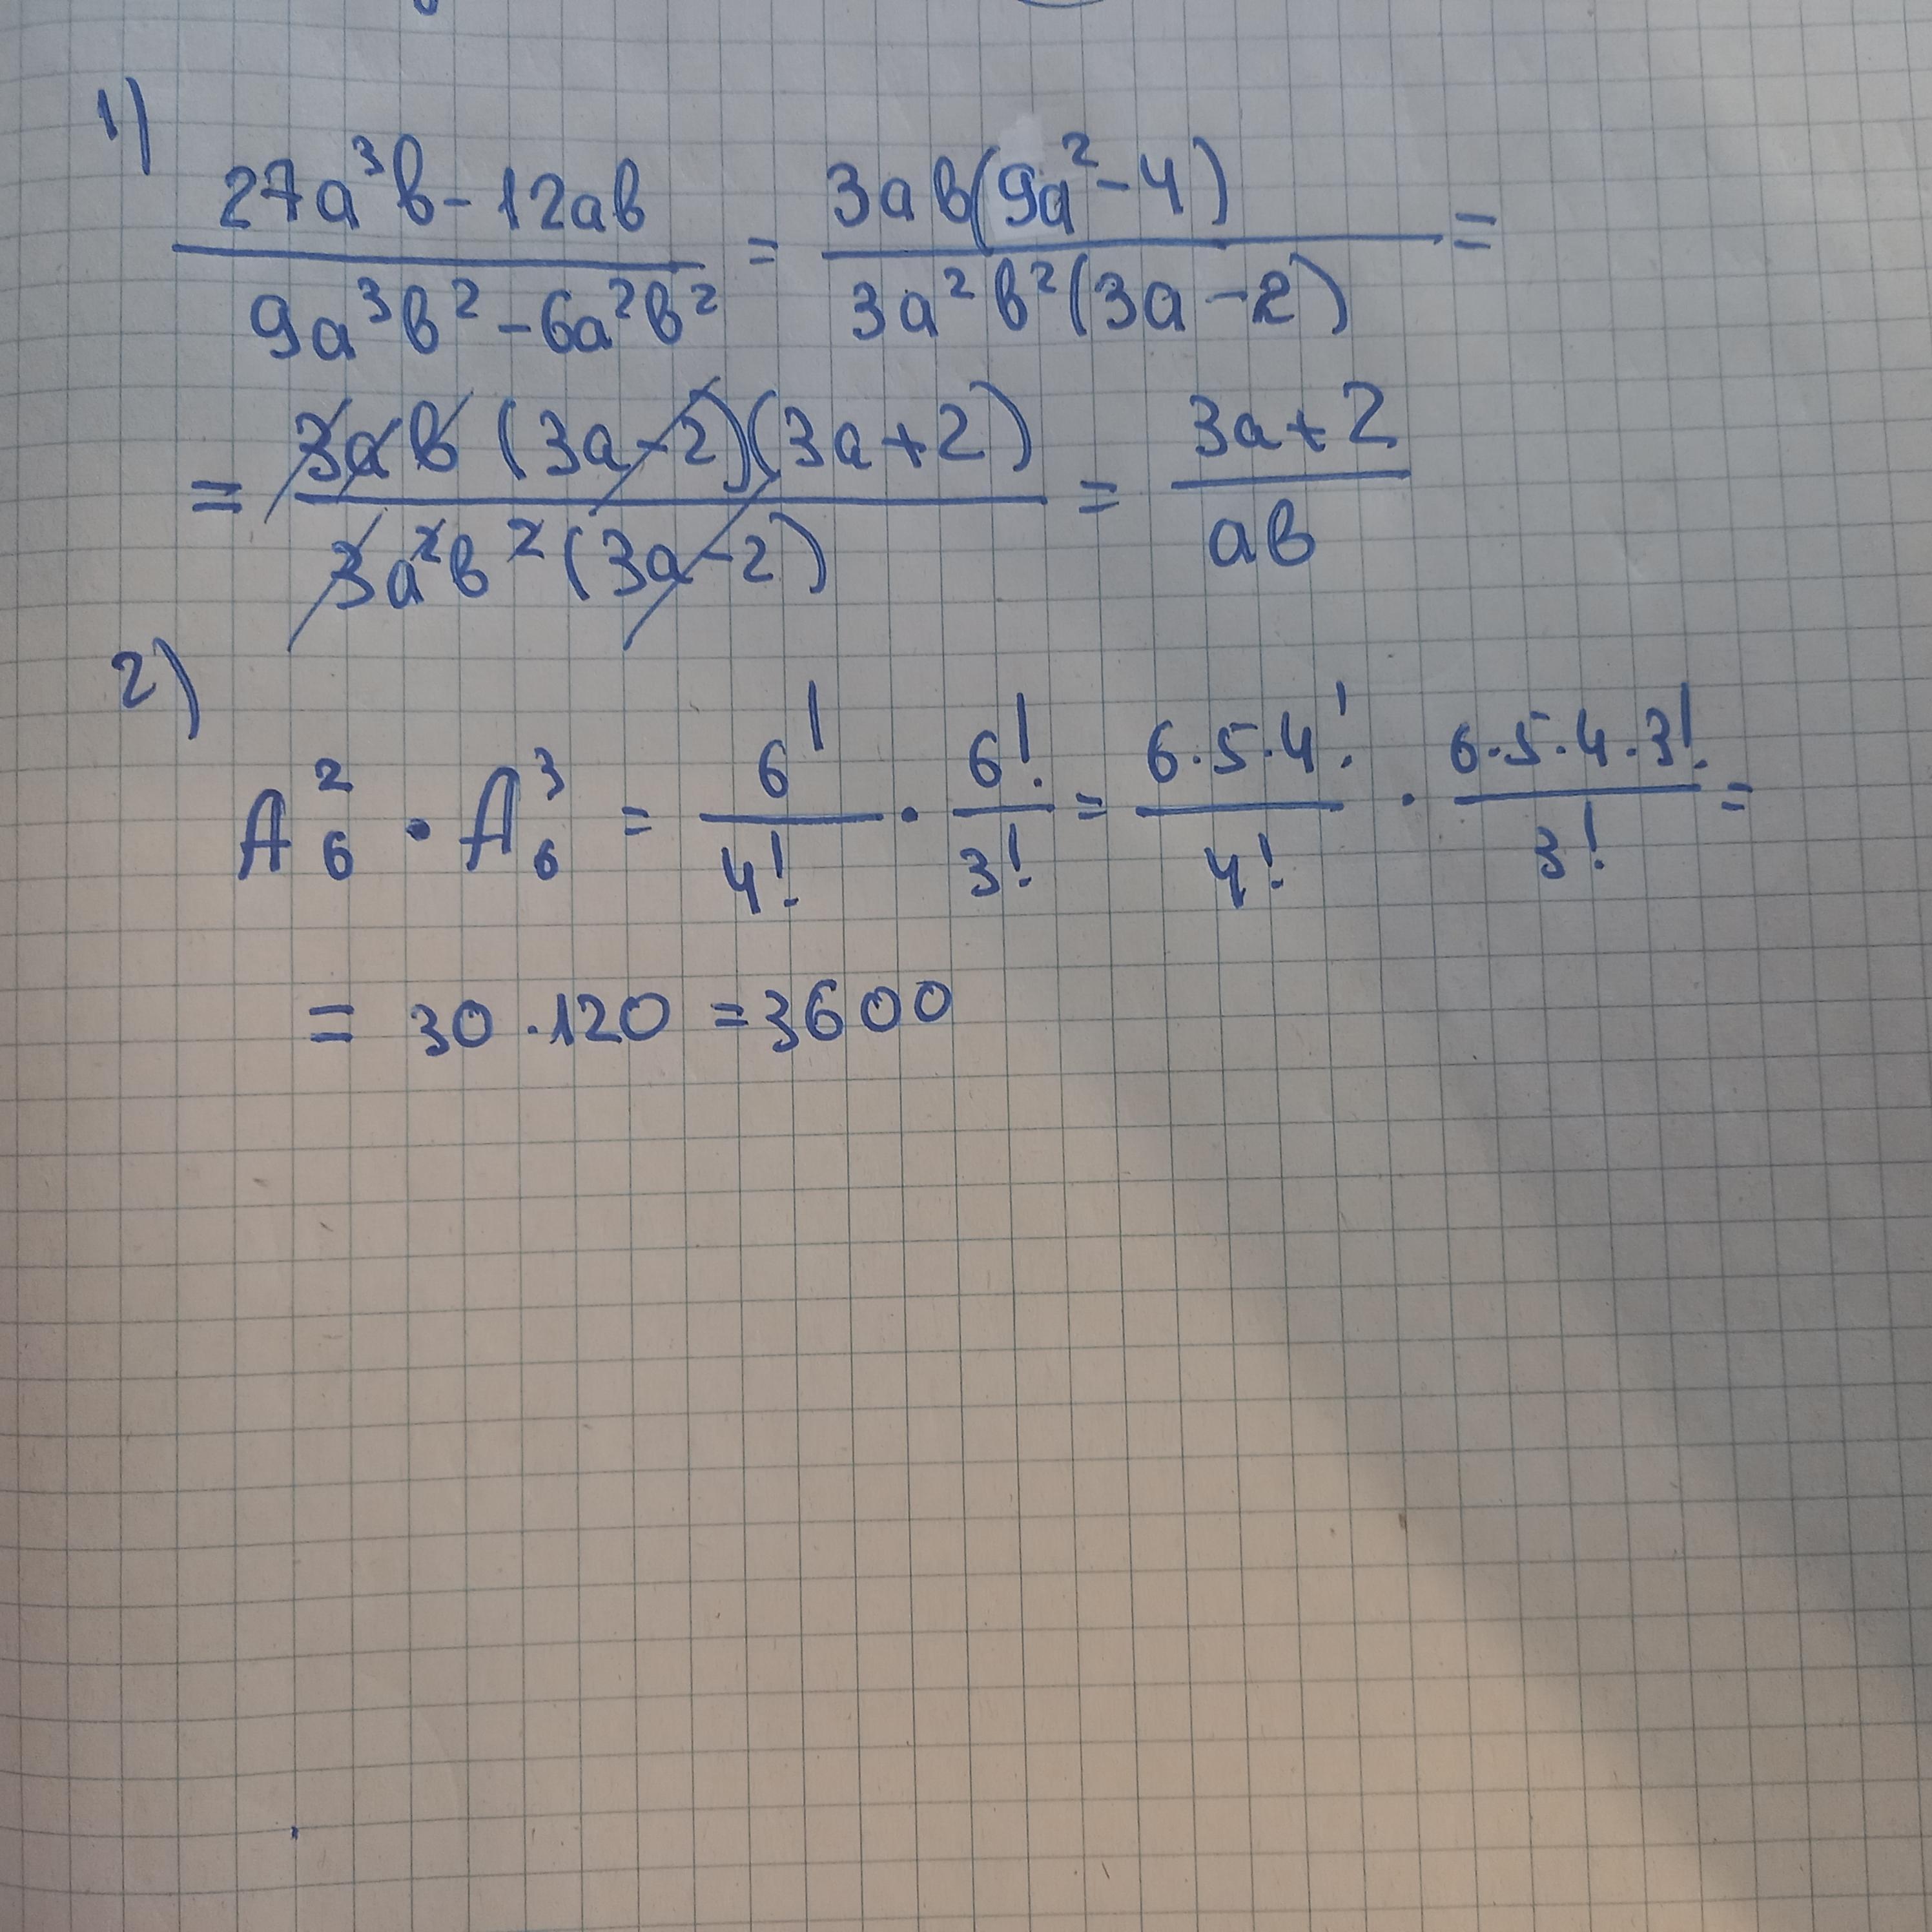 1)
27a³b - 12ab / 9a³b² - 6a²b² = 3ab(9a² - 4) / 3a²b²(3a - 2) =
= 3ab(3a - 2)(3a + 2) / 3a²b²(3a - 2) = 3a + 2 / ab
2)
A₆² · A₆³ = 6! / 4! · 6! / 3! = 6·5·4! / 4! · 6·5·4·3! / 3! =
= 30 · 120 = 3600